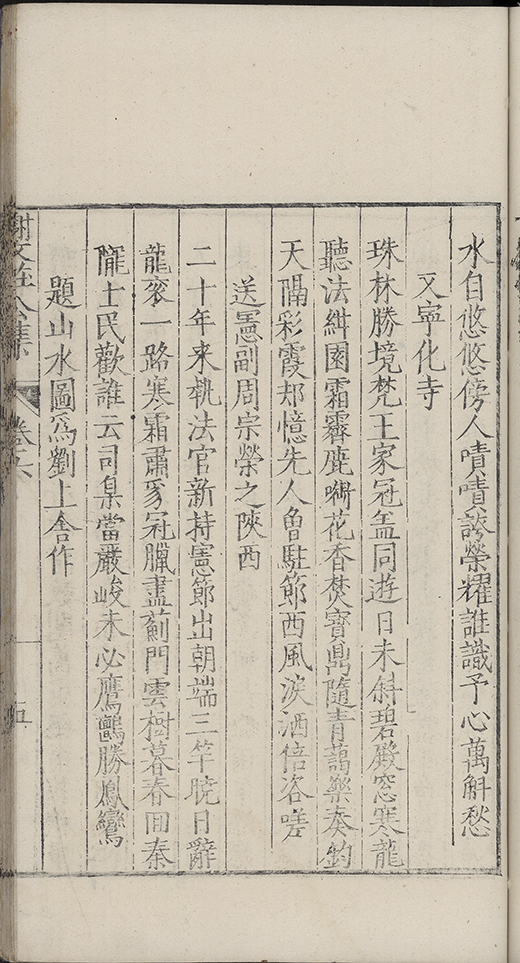 水自悠悠傍人嘖嘖誇榮耀誰識予心萬斛愁
又寧化寺
珠林勝境梵王家冠盖同遊日未斜碧殿窓寒龍
聽法紺園霜霽鹿啣花香焚寳鼎隨青藹樂奏鈞
天隔彩霞却憶先人曽駐節西風淚洒倍咨嗟
送憲副周宗榮之陝西
二十年来執法官新持憲節出朝端三竿曉日辭
龍衮一路寒霜肅豸冠臘盡薊門雲樹暮春囬秦
隴士民歡誰云司臬當嚴峻未必鷹鸇勝鳳鸞
題山水圖爲劉上舎作
謝文莊公集 卷六 五